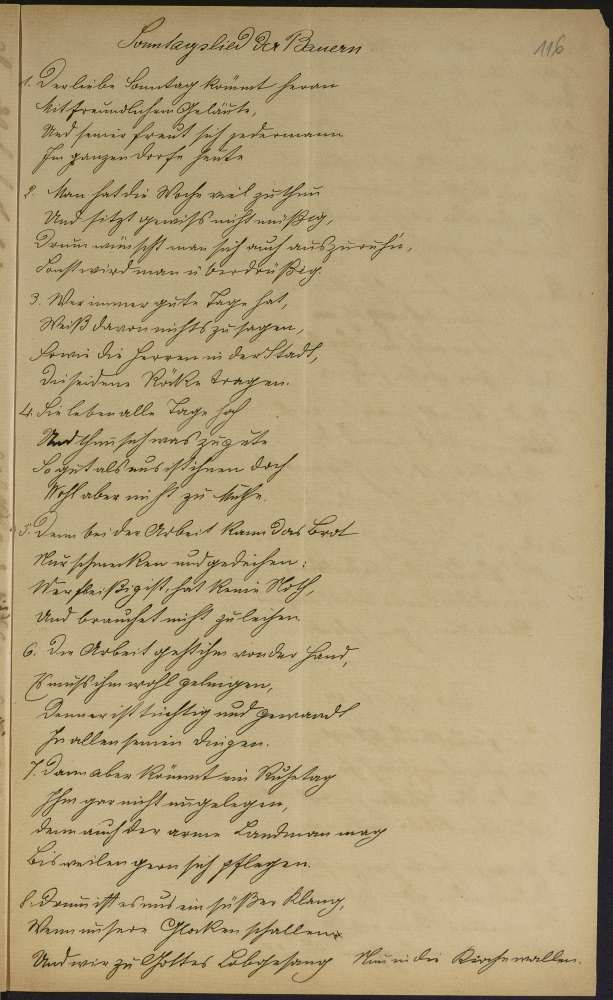 Sonntagslied der Bauern
116
1. Der liebe Sonntag kömmt heran
Mit freundlichem Geläute,
Und seiner freut sich jedermann
Im ganzen Dorfe heute
2. Man hat die Woche viel zu thun
Und sitzt gewiss nicht müßig,
Drum wünscht man sich auch auszuruh'n,
Sonst wird man überdrüßig.
3. Wer immer gute Tage hat,
Weiß davon nichts zu sagen,
So wie die Herren in der Stadt,
Die seidene Röcke tragen.
4. Sie leben alle Tage hoch
Und thun sich was zu gute
So gut als uns ist ihnen doch
Wohl aber nicht zu Muthe.
5. Denn bei der Arbeit kann das Brot
Nur schmecken und gedeihen:
Wer fleißig ist, hat keine Noth,
Und brauchet nicht zu leihen.
6. Die Arbeit geht ihm von der Hand,
Es muss ihm wohl gelingen,
Denn er ist tüchtig und gewandt
In allen seinen Dingen.
7. Dann aber kömmt ein Ruhetag
Ihm gar nicht ungelegen,
denn auch der arme Landman mag
Bisweilen gern sich pflegen.
8. Drum ist es uns ein süßer Klang,
Wenn unsere Glocken schallen
Und wir zu Gottes Lobgesang Nun in die Kirche wallen.